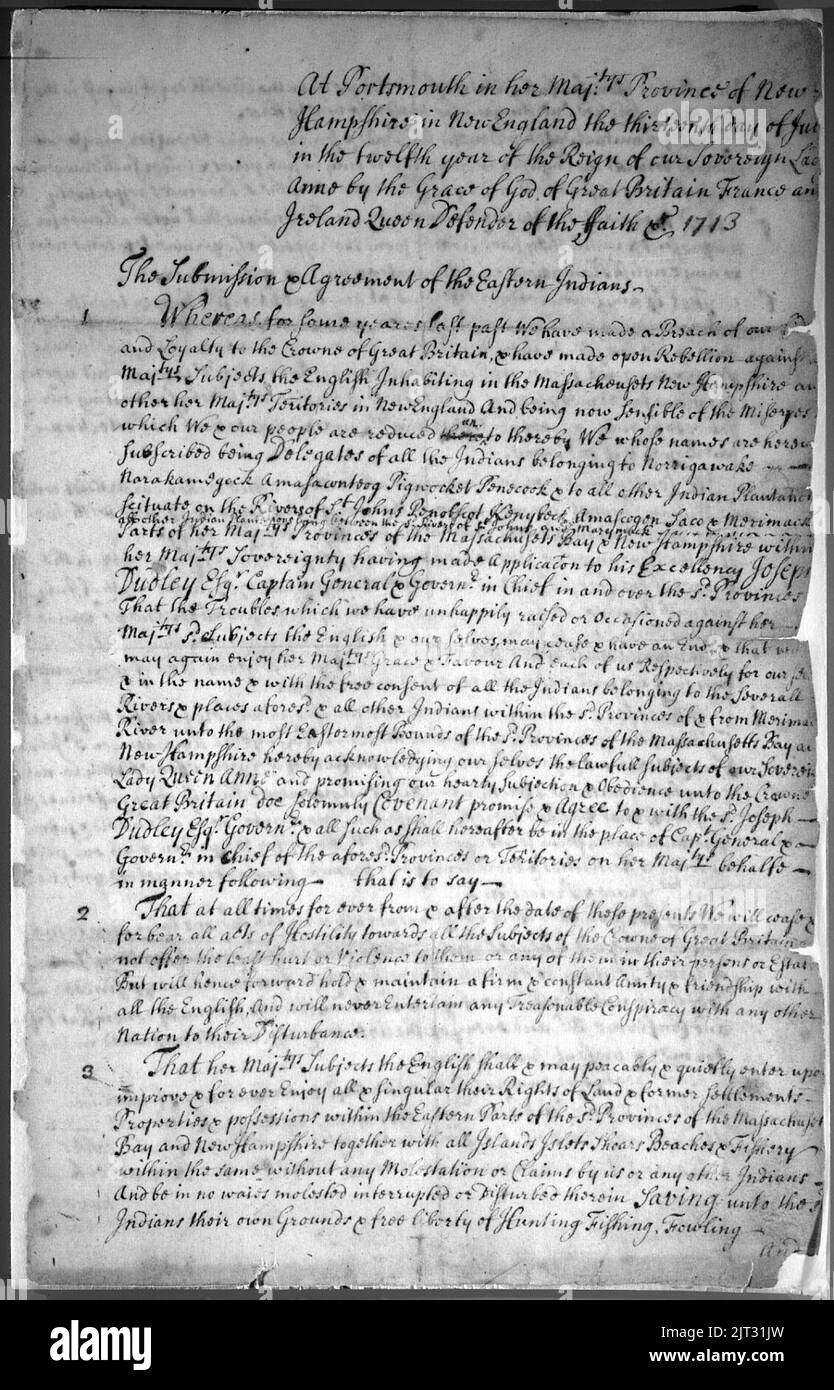 At Portsmouth in her Maj:tys Province of New
Hampshire in New England the thirteenth day of Ju
in the twelfth year of the Reign of our Sovereign La
Anne by the Grace of God, of Great Britain France an
Ireland Queen Defender of the ffaith &c. 1713
The Submission & Agreement of the Eastern Indians
1 Whereas for some yeares last past We have made a Breach of our
and Loyalty to the Crowne of Great Britain, & have made open Rebellion against
Maj:tys Subjects, the English Inhabiting in the Massacheusets New Hampshire an
other her Maj:tys Teritories in New England And being now Sensible of the Miseryes
which We & our people are reduced un to thereby We whose names are hereun
Subscribed being Delegates of all the Indians belonging to Norrigawake
Narakamegock Amasacontoog Pigwocket Penecook & to all other Indian Plantations
Scituate on the Rivers of St. Johns Penobscot Kenybeck Amascogen Saco & Merimack
all other Indian Plantations lying between the sd. Rivers of St. Johns and Merymack
Parts of her Maj:tys Provinces of the Massachusets Bay & New Hampshire within
her Maj:tys Sovereignty having made Application to his Excellency Joseph
Dudley Esqr. Captain General & Governr. in Chief in and over the sd. Provinces
That the Troubles which we have unhappily raised or Occasioned against her
Maj:tys sd. Subjects the English & our selves, may cease & have an End, & that we
may again enjoy her Maj:tys Grace & Favour And each of us Respectively for our sel
& in the name & with the free consent of all the Indians belonging to the Severall
Rivers & places aforesd. & all other Indians within the sd. Provinces of & from Merimac
River unto the most Eastermost Bounds of the sd. Provinces of the Massachusetts Bay an
New Hampshire hereby acknowledging our selves the lawfull Subjects of our Sovereig
Lady Queen Anne and promising our hearty Subjection & Obedience unto the Crowne
Great Britain doe solemnly Covenant promise & Agree to & with the sd. Joseph
Dudley Esqr. Governr. & all such as shall hereafter be in the place of Capt. General &
Governr. in Chief of the aforesd. Provinces or Teritories on her Maj:tys behalfe
in manner following that is to say
2 That at all times for ever from & after the date of these presents We will cease &
forbear all acts of Hostility towards all the Subjects of the Crowne of Great Britain
not offer the least hurt or Violence to them or any of them in their persons or Estat
But will hence forward hold & maintain a firm & constant Amity & friendship with
all the English, And will never Entertain any Treasonable Conspiracy with any other
Nation to their Disturbance.
3 That her Maj:tys Subjects the English shall & may peacably & quietly enter upon
improve & for ever Enjoy all & singular their Rights of Land & former Settlements
Properties & possessions within the Eastern Parts of the sd. Provinces of the Massachuset
Bay and New Hampshire together with all Islands Islets Shoars Beaches & Fishery
within the same, without any Molestation or Claims by us or any other Indians
And be in no waies molested interrupted or Disturbed therein Saving unto the s
Indians their own Grounds & free liberty of Hunting Fishing, Fowling
And
alamy
alamy
Image ID: 2JT31JW
www.alamy.com